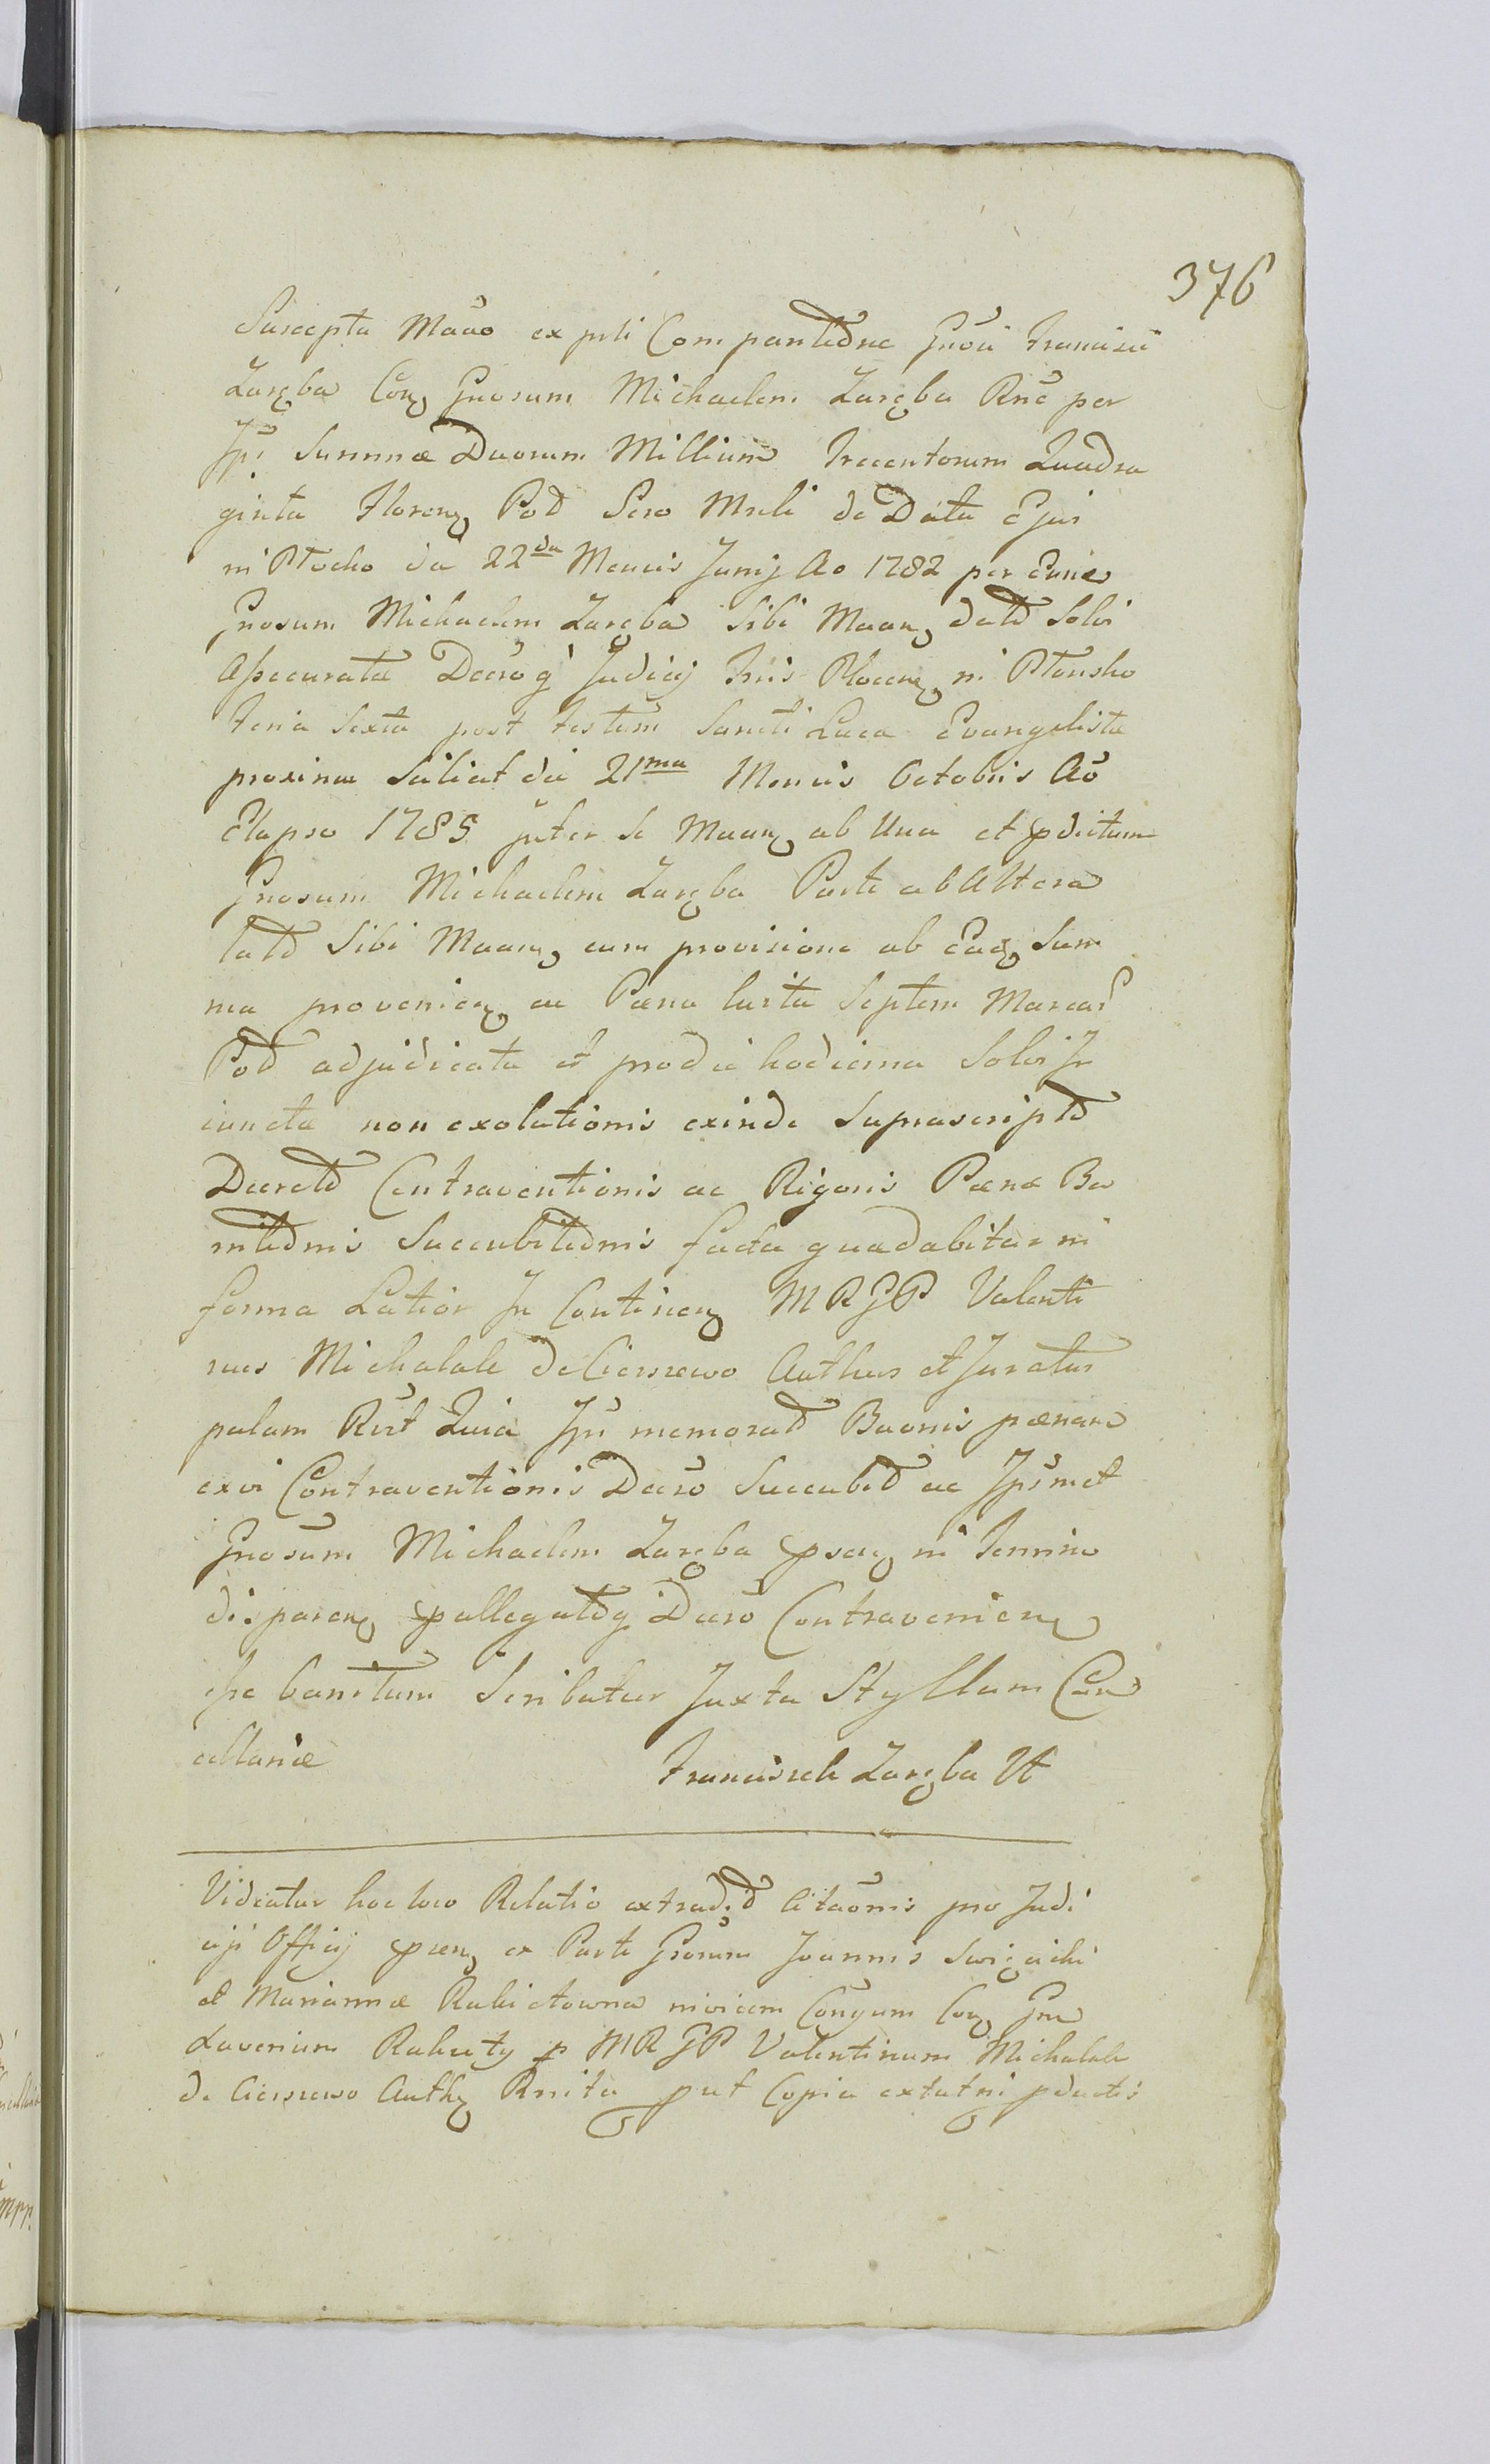 376
Suscepta Mãuo ex prti Comparitdne Gnõsi Francisci
Zaręba Con Gnosum Michaelem Zaręba Rñe per
Jpi Summæ Duorum Millium Trecentorum Quadra
ginta Floren Pod Scro Mrli de Data Ejus
in Płocko die 22da Mensis Junij Ao 1782 per Eunc
Gnosum Michaelem Zaręba Sibi Maan datd Solvi
Assecuratæ Decroq Judicij Tris Plocen in Płonsko
Feria Sexta post Festum Sancti Lucæ Evangelistæ
proxima Scilicet die 21ma Mensis Octobris Aõ
Elapso 1785 jnter Se Maan ab Una et pdictum
Gnosum Michaelem Zaręba Parte ab Altera
latd Sibi Maan cum provisione ab Eaq Sum
ma provenien ac Pæna luita Septem Marcar
Pod adjudicatæ et pro die hodierna Solvi Jn
iunctæ non exolutionis exinde Suprascriptd
Decretd Contraventionis ac Rigoris Pænæ Ba
nitdnis Succubitdnis facta quæ dabitur in
forma Latior Jn Continen MRGP Valenti
nus Michalak de Cierszewo Authus et Juratus
palam Rcit Quia Jpu memoratd Baonis pænam
ex vi Contraventionis Decro Succubtd ac Jpsmet
Gnosum Michaelem Zaręba psen in Termino
disparen pallegatdq Decro Contravenien
esse banitum Scribatur Juxta Styllum Can
cellariæ
Franciszek Zaręba Vt
Videatur hoc loco Relatio extradid Citaõnis pro Judi
cij Officij psen ex Parte Gnorum Joannis
et Mariannæ invicem Coñgum Con Gnu
Laverium p MRGP Valentinum Michalak
de Ciersewo Auth Rnita put Copia extat in pductis